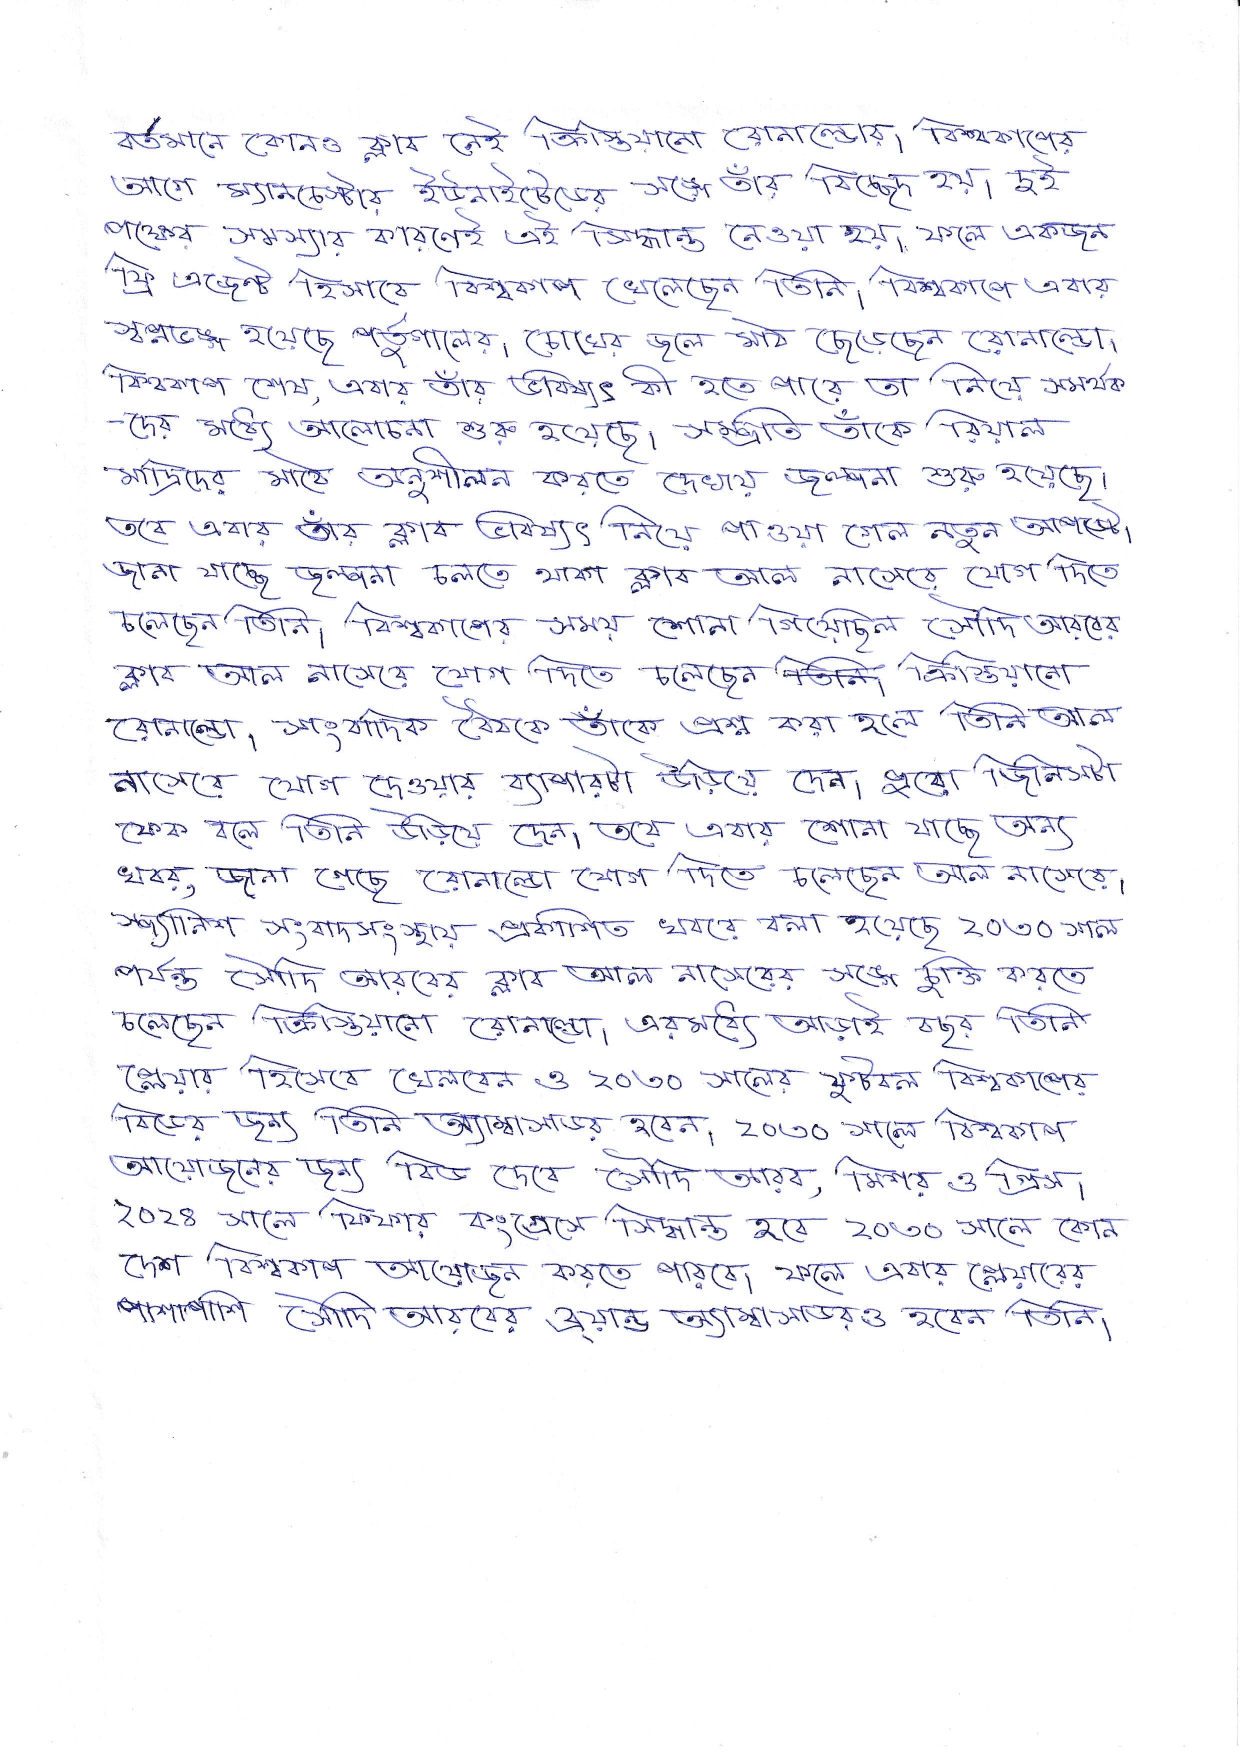 বর্তমানে কোনও ক্লাব নেই ক্রিস্তিয়ানো রোনাল্ডোর। বিশ্বকাপের
আগে ম্যানচেস্টার ইউনাইটেডের সঙ্গে তাঁর বিচ্ছেদ হয়। দুই
পক্ষের সমস্যার কারণেই এই সিদ্ধান্ত নেওয়া হয়। ফলে একজন
ফ্রি এজেন্ট হিসাবে বিশ্বকাপ খেলেছেন তিনি। বিশ্বকাপে এবার
স্বপ্নভঙ্গ হয়েছে পর্তুগালের। চোখের জলে মাঠ ছেড়েছেন রোনাল্ডো।
বিশ্বকাপ শেষ, এবার তাঁর ভবিষ্যৎ কী হতে পারে তা নিয়ে সমর্থক
-দের মধ্যে আলোচনা শুরু হয়েছে। সম্প্রতি তাঁকে রিয়াল
মাদ্রিদের মাঠে অনুশীলন করতে দেখায় জল্পনা শুরু হয়েছে।
তবে এবার তাঁর ক্লাব ভবিষ্যৎ নিয়ে পাওয়া গেল নতুন আপডেট।
জানা যাচ্ছে জল্পনা চলতে থাকা ক্লাব আল নাসেরে যোগ দিতে
চলেছেন তিনি। বিশ্বকাপের সময় শোনা গিয়েছিল সৌদি আরবের
ক্লাব আল নাসেরে যোগ দিতে চলেছেন তিনি। ক্রিস্তিয়ানো
রোনাল্ডো। সাংবাদিক বৈঠকে তাঁকে প্রশ্ন করা হলে তিনি আল
নাসেরে যোগ দেওয়ার ব্যাপারটা উড়িয়ে দেন। পুরো জিনিসটা
ফেক বলে তিনি উড়িয়ে দেন। তবে এবার শোনা যাচ্ছে অন্য
খবর, জানা গেছে রোনাল্ডো যোগ দিতে চলেছেন আল নাসেরে।
স্প্যানিশ সংবাদসংস্থায় প্রকাশিত খবরে বলা হয়েছে ২০৩০ সাল
পর্যন্ত সৌদি আরবের ক্লাব আল নাসেরের সঙ্গে চুক্তি করতে
চলেছেন ক্রিস্তিয়ানো রোনাল্ডো। এরমধ্যে আড়াই বছর তিনি
প্লেয়ার হিসেবে খেলবেন ও ২০৩০ সালের ফুটবল বিশ্বকাপের
বিডের জন্য তিনি অ্যাম্বাসাডর হবেন। ২০৩০ সালে বিশ্বকাপ
আয়োজনের জন্য বিড দেবে সৌদি আরব, মিশর ও গ্রিস।
২০২৪ সালে ফিফার কংগ্রেসে সিদ্ধান্ত হবে ২০৩০ সালে কোন
দেশ বিশ্বকাপ আয়োজন করতে পারবে। ফলে এবার প্লেয়ারের
পাশাপাশি সৌদি আরবের ব্র্যান্ড অ্যাম্বাসাডরও হবেন তিনি।